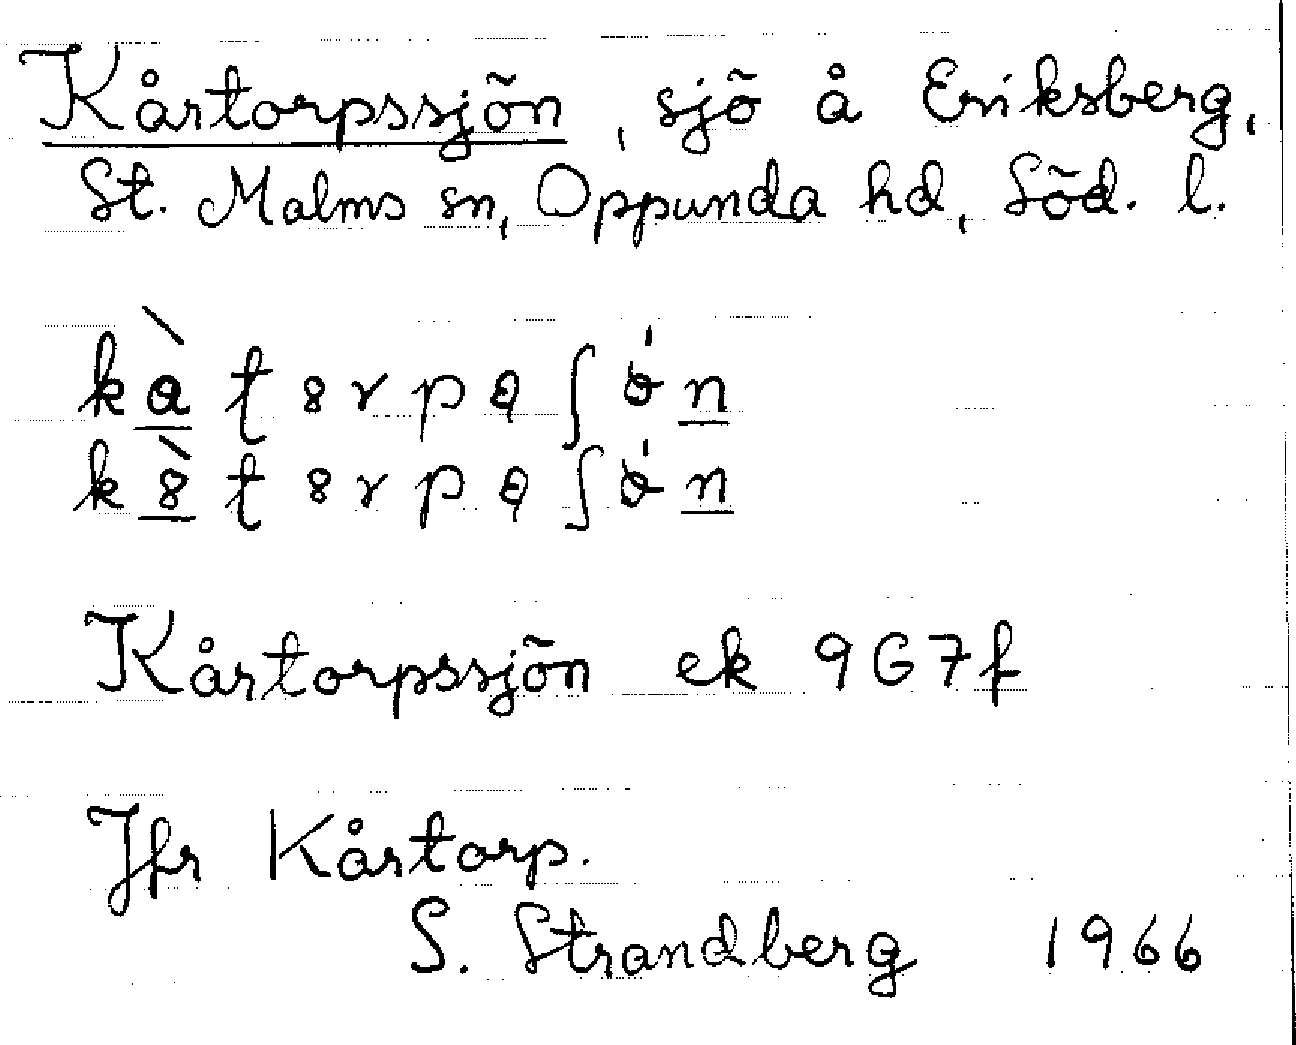 Kårtorpssjön, sjö å Eriksberg,
St. Malms sn, Oppunda hd, Söd. l.
Kårtorpssjön ek 9G7f
Jfr Kårtorp.
S. Strandberg 1966